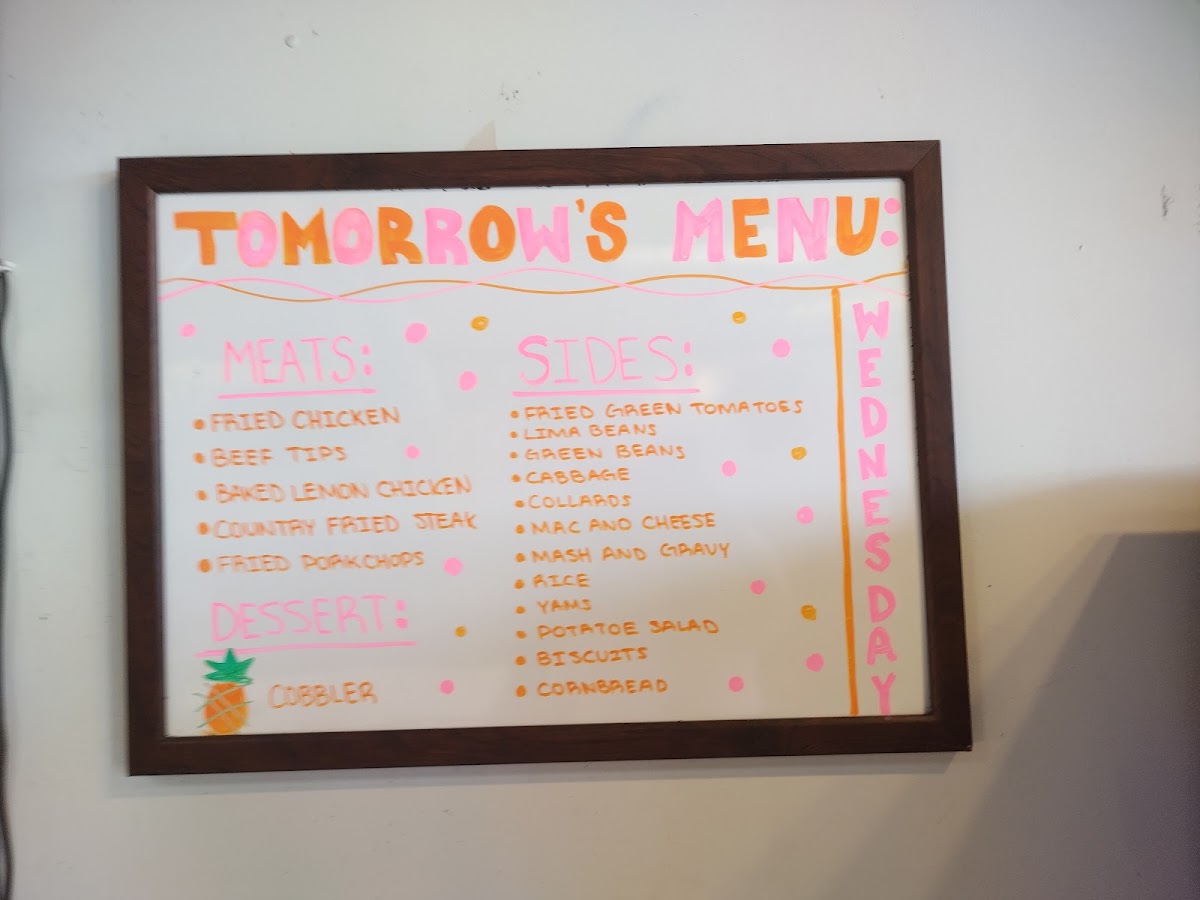 TOMORROW'S MENU:
MEATS:
• FRIED CHICKEN
• BEEF TIPS
• BAKED LEMON CHICKEN
• COUNTRY FRIED STEAK
• FRIED PORKCHOPS
DESSERT:
COBBLER
SIDES:
• FRIED GREEN TOMATOES
• LIMA BEANS
• GREEN BEANS
• CABBAGE
• COLLARDS
• MAC AND CHEESE
• MASH AND GRAVY
• RICE
• YAMS
• POTATOE SALAD
• BISCUITS
• CORNBREAD
WEDNESDAY